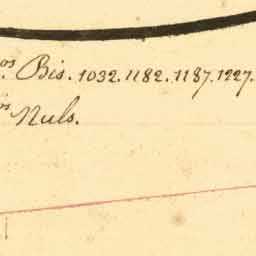 os. Bis. 1032. 1182. 1187. 1227.
os Nuls.